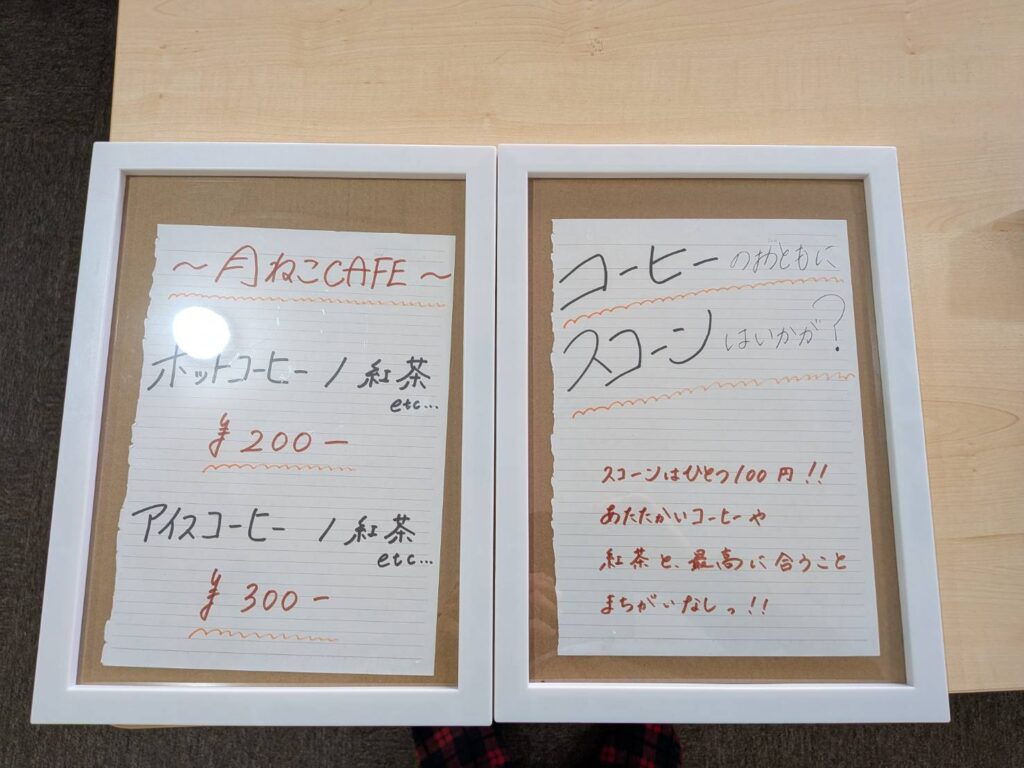 ～月ねこCAFE～
ホットコーヒー / 紅茶
etc...
¥200－
アイスコーヒー / 紅茶
etc...
¥300－
コーヒーのおともに
スコーンはいかが?
スコーンはひとつ100円!!
あたたかいコーヒーや
紅茶と、最高に合うこと
まちがいなしっ!!